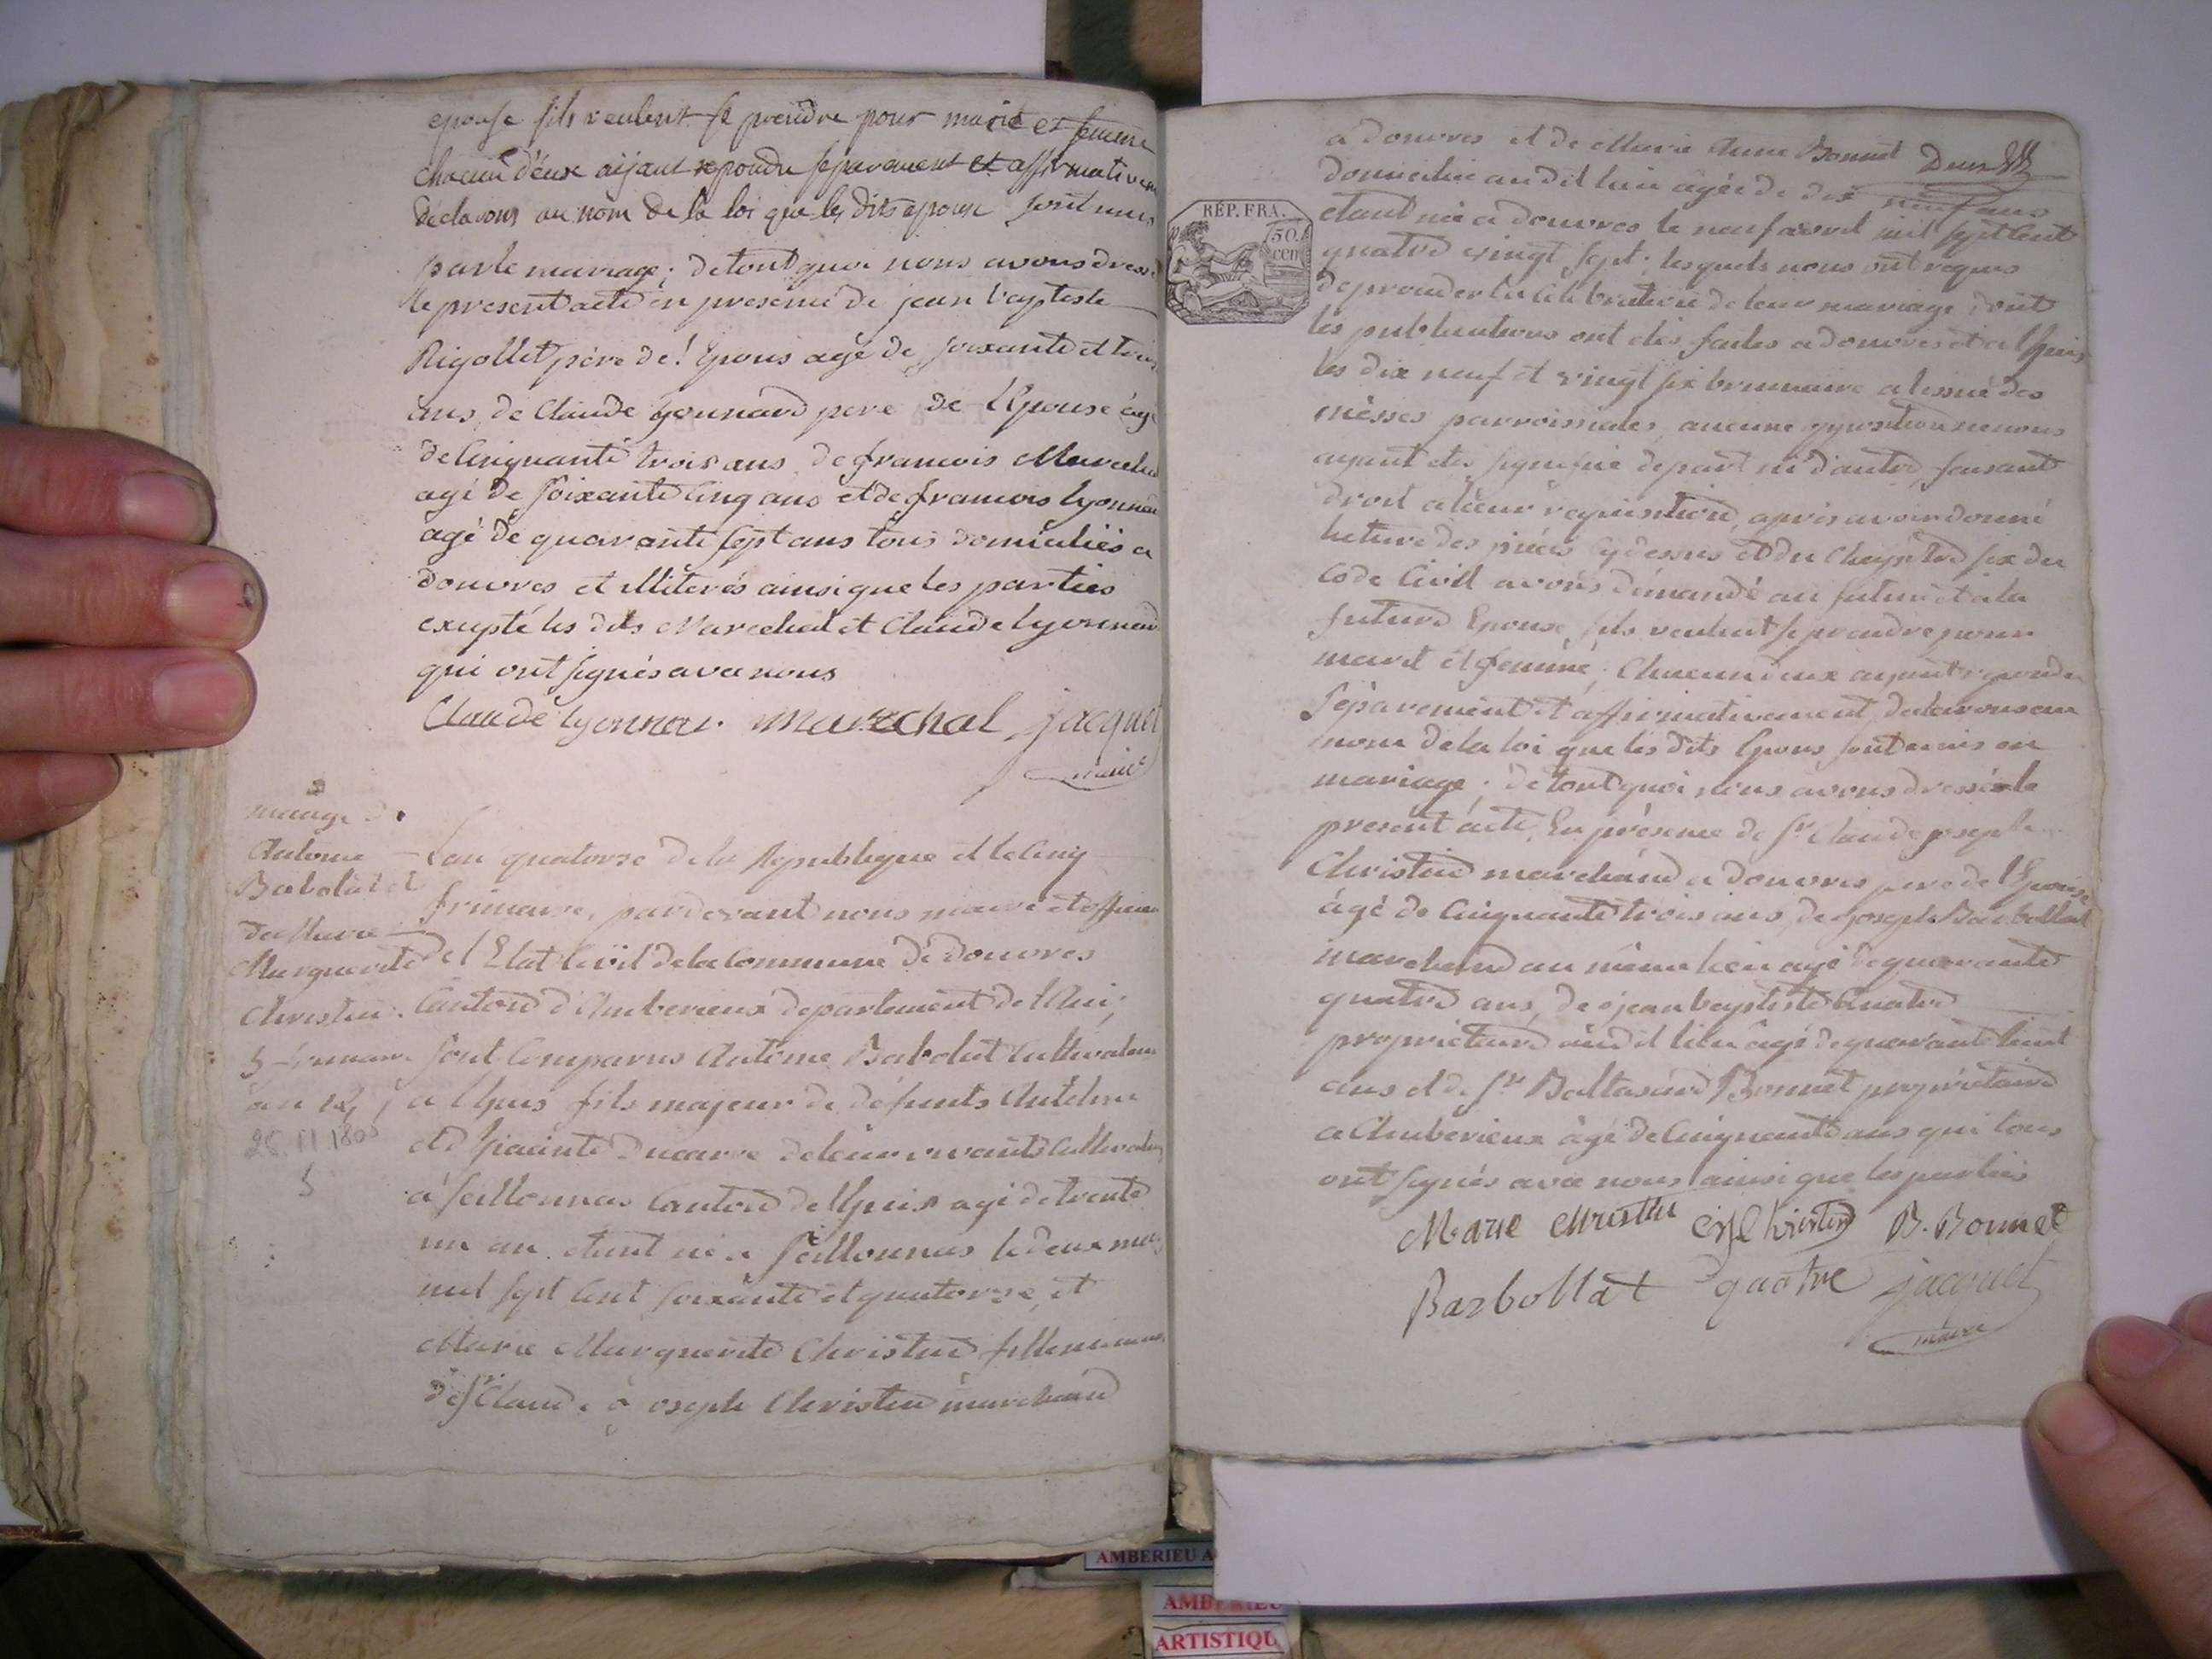 epouse s'ils veulent se prendre pour marit et femme
chacun d'eux aijant repondu separement et affirmativem
declarons au nom de la loi que les dits epoux sont unis
par le mariage; de tout quoi nous avons dressé
le present acte en presence de jean baptiste
Rigollet père de l'Epoux agé de soixante et trois
ans, de Claude lyonnard pere de l'Epouse agé
de Cinquante trois ans de francois Marechal
agé de soixante Cinq ans et de francois lyonnard
agé de quarante sept ans tous domiciliés a
douvres et illiterés ainsi que les parties
excepté les dits Marechal et Claude lyonnard
qui ont signés avec nous
Claude lyonnar marechal jacquet
maire
mariage de
Antoine
Babolat et
de Marie
Marguerite
Christin
5 frimaire
an 14
L'an quatorze de la Republique et le Cinq
frimaire, pardevant nous maire et officier
de l'Etat Civil de la Commune de douvres
Canton d'Amberieux departement de l'Ain,
sont Comparus Antoine Babolat Cultivateur
a lhuis fils majeur de défunts Antelme
et hiacinte Ducarre de leur vivants Cultivateurs
a seillonnas Canton de lhuis agé de trente
un an étant né a Seillonnas le deux mars
mil sept Cent soixante et quatorze, et
Marie Marguerite Christin fille mineure
de Sr Claude joseph Christin marchand
a douvres et de Marie Anne Bonnet
domiciliée audit lieu agée de dix neuf ans
RÉP. FRA.
50
cen
etant née a douvres le neuf avril mil sept Cent
quatre vingt sept; lesquels nous ont requis
de proceder a la Celebration de leur mariage, dont
les publications ont etés faites a douvres et a lhuis
les dix neuf et vingt six brumaire a l'issue des
mèsses parroissiales, aucune opposition ne nous
ayant etés signifiée de part ni d'autre, faisant
droit a leur requisition, apres avoir donné
lecture des pièces Cy dessus et du Chapitre six du
Code Civil avons demandé au futur et a la
future Epouse, s'ils veulent se prendre pour
marit et femme; Chacun d'eux ayant repondu
Séparement et affirmativement, declarons au
nom de la loi que les dits Epoux sont unis en
mariage; de tout quoi nous avons dressé le
present acte, En présence de Sr Claude joseph
Christin marchand a douvres pere de l'Epouse
agé de Cinquante trois ans, de joseph Barbollat
marchand au même lieu agé de quarante
quatre ans, de jean baptiste Quatre
proprietaire audit lieu agé de quarante huit
ans et de Sr Baltasard Bonnet proprietaire
a Amberieux agé de Cinquante ans qui tous
ont signés avec nous ainsi que les parties
Marie christin Christin B. Bonnet
Barbollat quatre jacquet
maire
AMBERIEU A
AMBERIEU
ARTISTIQU